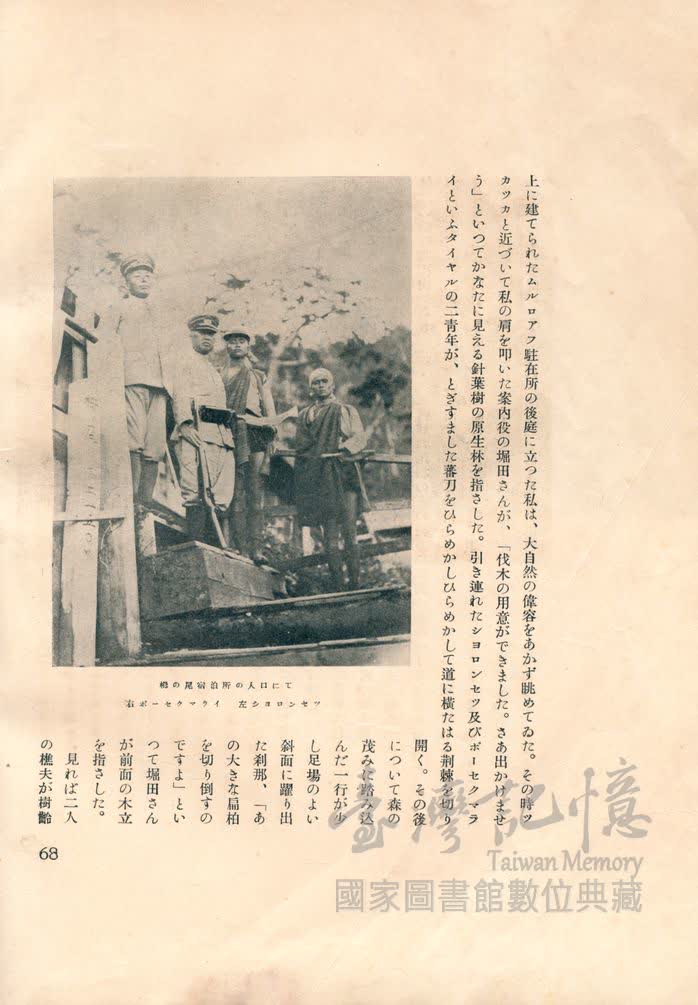 上に建てられたムルロアフ駐在所の後庭に立つた私は、大自然の偉容をあかず眺めてゐた。その時ツ
カツカと近づいて私の肩を叩いた案内役の堀田さんが、「伐木の用意ができました。さあ出かけませ
う」といつてかなたに見える針葉樹の原生林を指さした。引き連れたシヨロンセツ及びボーセクマラ
イといふタイヤルの二青年が、とぎすました蕃刀をひらめかしひらめかして道に横たはる荊棘を切り
開く。その後
について森の
茂みに踏み込
んだ一行が少
し足場のよい
斜面に躍り出
た刹那、「あ
の大きな扁柏
を切り倒すの
ですよ」とい
つて堀田さん
が前面の木立
を指さした。
見れば二人
の樵夫が樹齡
の尾宿泊所の入口にて
右ボーセクマライ 左シヨロンセツ
68
臺灣記憶
Taiwan Memory
國家圖書館數位典藏